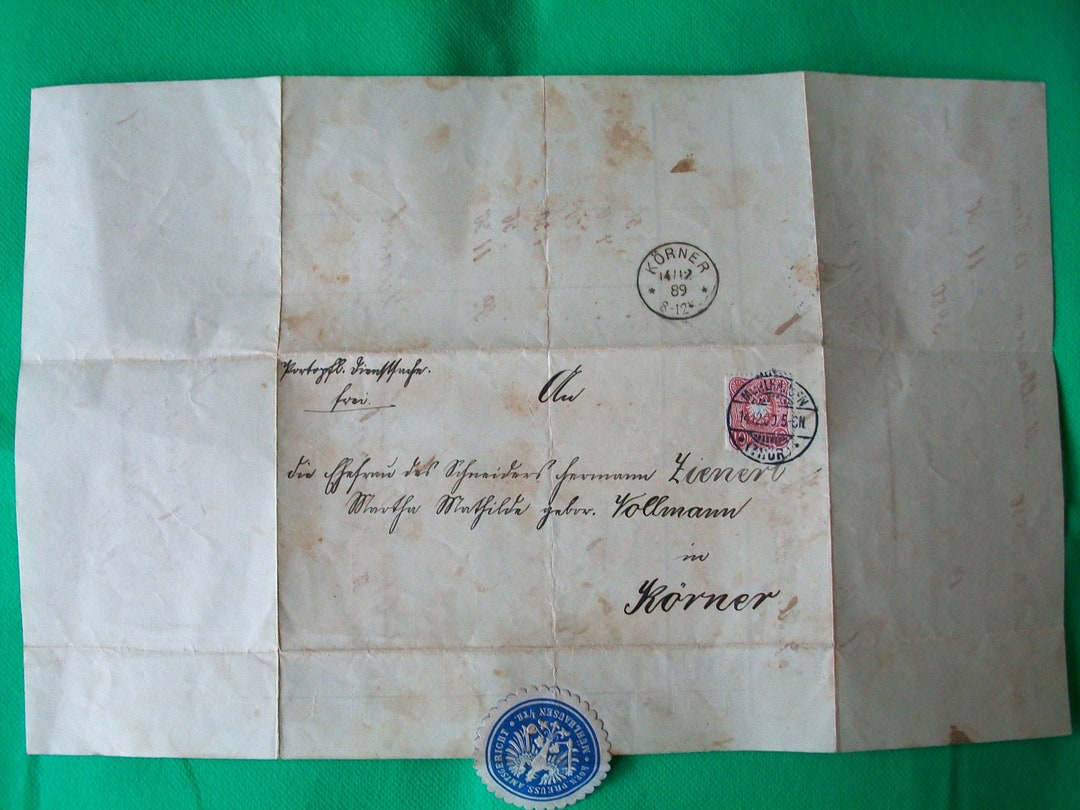 KÖRNER
14/12
89
8-12V
Portopfl. Dienstsache.
frei.
An
MÜHLHAUSEN
(THÜR)
die Ehefrau des Schneiders Hermann Zienert
Martha Mathilde gebor. Vollmann
in
Körner
KOEN. PREUSS. AMTSGERICHT
MÜHLHAUSEN I/TH.